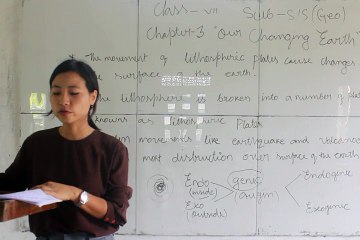 Class - VII Sub - S.S (Geo)
Chapter-3 "Our Changing Earth"
* The movement of lithospheric plates cause changes
surface the earth.
The lithosphere is broken into a number of
known as lithospheric Plates
movements like earthquake and Volcanoes
most distruction over surface of the earth
Endo genic Endogenic
(inside) (origin)
Exo Exogenic
(outside)